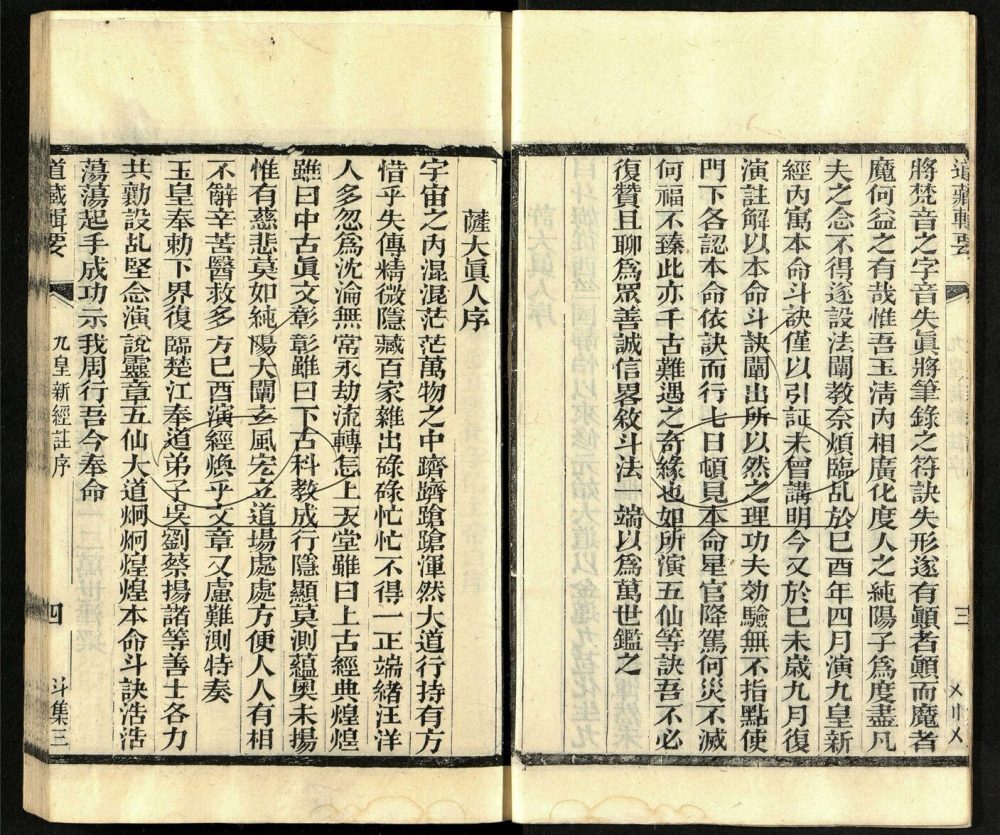 道藏輯要
三
將梵音之字音失眞將筆錄之符訣失形遂有顚者顚而魔者
魔何益之有哉惟吾玉淸內相廣化度人之純陽子爲度盡凡
夫之念不得遂設法闡教奈煩臨乩於己酉年四月演九皇新
經內寓本命斗訣僅以引証未曾講明今又於己未歲九月復
演註解以本命斗訣闡出所以然之理功夫効驗無不指點使
門下各認本命依訣而行七日頓見本命星官降駕何災不滅
何福不臻此亦千古難遇之奇緣也如所演五仙等訣吾不必
復贊且聊爲眾善誠信畧敘斗法一端以爲萬世鑑之
薩大眞人序
宇宙之內混混茫茫萬物之中躋躋蹌蹌渾然大道行持有方
惜乎失傳精微隱藏百家雜出碌碌忙忙不得一正端緒汪洋
人多忽爲沈淪無常永劫流轉怎上天堂雖曰上古經典煌煌
雖曰中古眞文彰彰雖曰下古科教成行隱顯莫測蘊奧未揚
惟有慈悲莫如純陽大闡玄風宏立道場處處方便人人有相
不辭辛苦醫救多方己酉演經煥乎文章又慮難測特奏
玉皇奉勅下界復臨楚江奉道弟子吳劉蔡揚諸等善士各力
共勷設乩堅念演說靈章五仙大道炯炯煌煌本命斗訣浩浩
蕩蕩起手成功示我周行吾今奉命
道藏輯要
九皇新經註序
四
斗集三